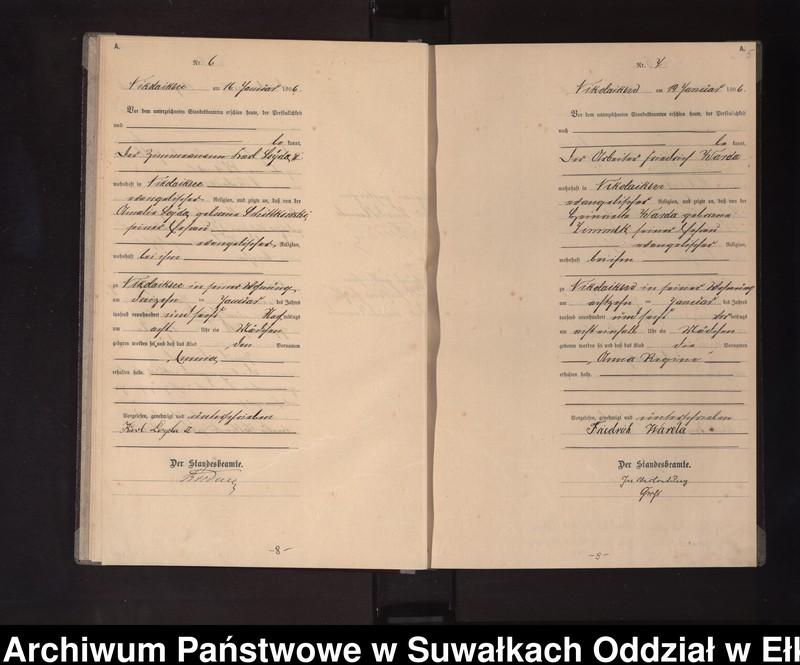 A.
Nr. 6
Nikolaiken am 16 Januar 1906.
Vor dem unterzeichneten Standesbeamten erschien heute, der Persönlichkeit
nach
be kannt,
der Zimmermann Karl
wohnhaft in Nikolaiken
evangelischer Religion, und zeigte an, daß von der
Amalie geborene
seiner Ehefrau
evangelischer Religion,
wohnhaft bei ihm
zu Nikolaiken in seiner Wohnung
am dreizehn ten Januar des Jahres
tausend neunhundert und sechs mittags
um acht Uhr ein Mädchen
geboren worden sei und daß das Kind den Vornamen
Emma
erhalten habe.
Vorgelesen, genehmigt und unterschrieben
Karl
Der Standesbeamte.
-8-
A.
5
Nr. 7
Nikolaiken am 19 Januar 1906.
Vor dem unterzeichneten Standesbeamten erschien heute, der Persönlichkeit
nach
be kannt,
der Arbeiter Friedrich Warda
wohnhaft in Nikolaiken
evangelischer Religion, und zeigte an, daß von der
Henriette Warda geborene
seiner Ehefrau
evangelischer Religion,
wohnhaft bei ihm
zu Nikolaiken in seiner Wohnung
am achtzehn ten Januar des Jahres
tausend neunhundert und sechs mittags
um acht einhalb Uhr ein Mädchen
geboren worden sei und daß das Kind die Vornamen
Anna Regine
erhalten habe.
Vorgelesen, genehmigt und unterschrieben
Friedrich Warda
Der Standesbeamte.
In Vertretung
-9-
Archiwum Państwowe w Suwałkach Oddział w Ełk